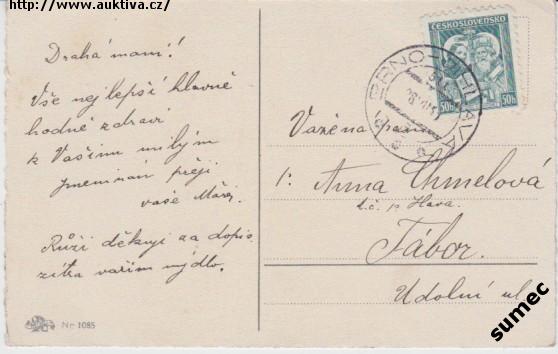 http://www.auktiva.cz/
Drahá mami!
Vše nejlepší hlavně
hodně zdraví
k Vašim milým
jmeninám přeji
vaše Máňa.
Růži děkuji za dopis
zítra vařím mýdlo.
Nr 1085
ČESKOSLOVENSKO
50h 50h
BRNO
Vážená paní
Anna Chmelová
t.č. p. Hava.
Tábor.
Údolní ul.
sumec